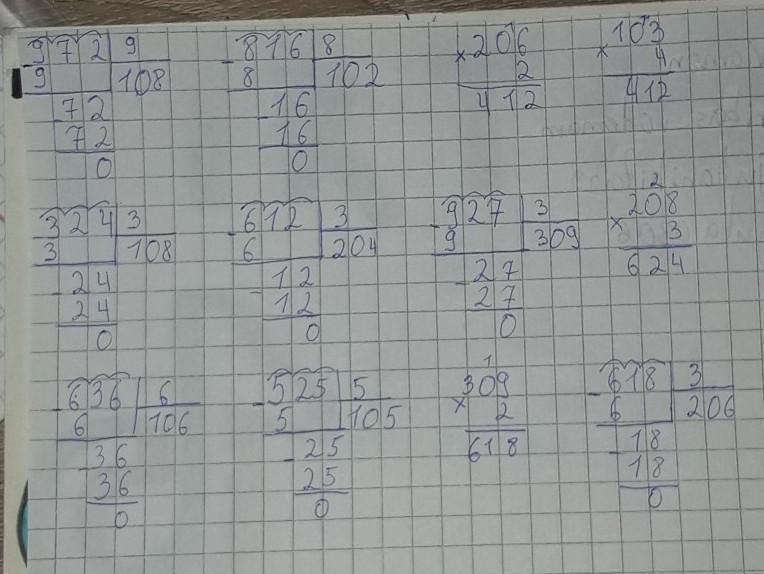 - 972 | 9
9 | 108
- 72
72
0
- 816 | 8
8 | 102
- 16
16
0
1
× 206
2
412
1
× 103
4
412
- 324 | 3
3 | 108
- 24
24
0
- 612 | 3
6 | 204
- 12
12
0
- 927 | 3
9 | 309
- 27
27
0
2
× 208
3
624
- 636 | 6
6 | 106
- 36
36
0
- 525 | 5
5 | 105
- 25
25
0
1
× 309
2
618
- 618 | 3
6 | 206
- 18
18
0